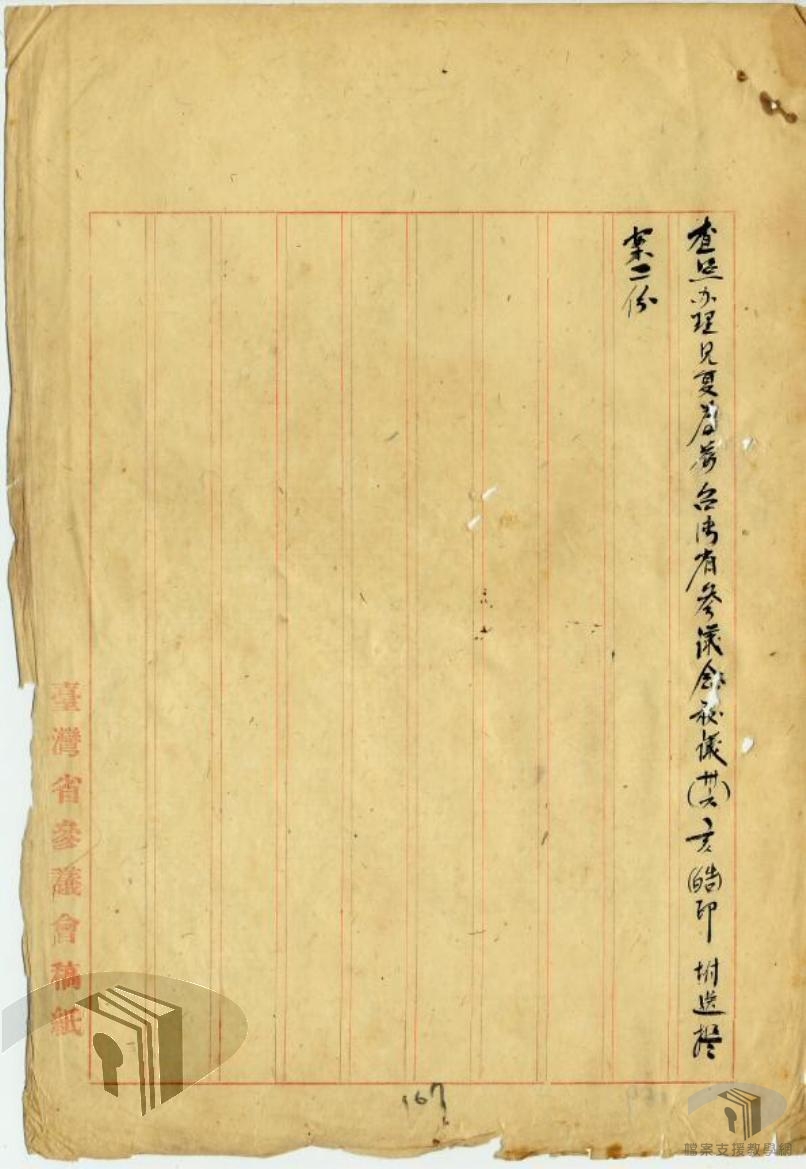 查照办理見复為荷台湾省參議會秘議(卅六)亥(皓)印 附送提
案二份
臺灣省參議會稿紙
167
檔案支援教學網